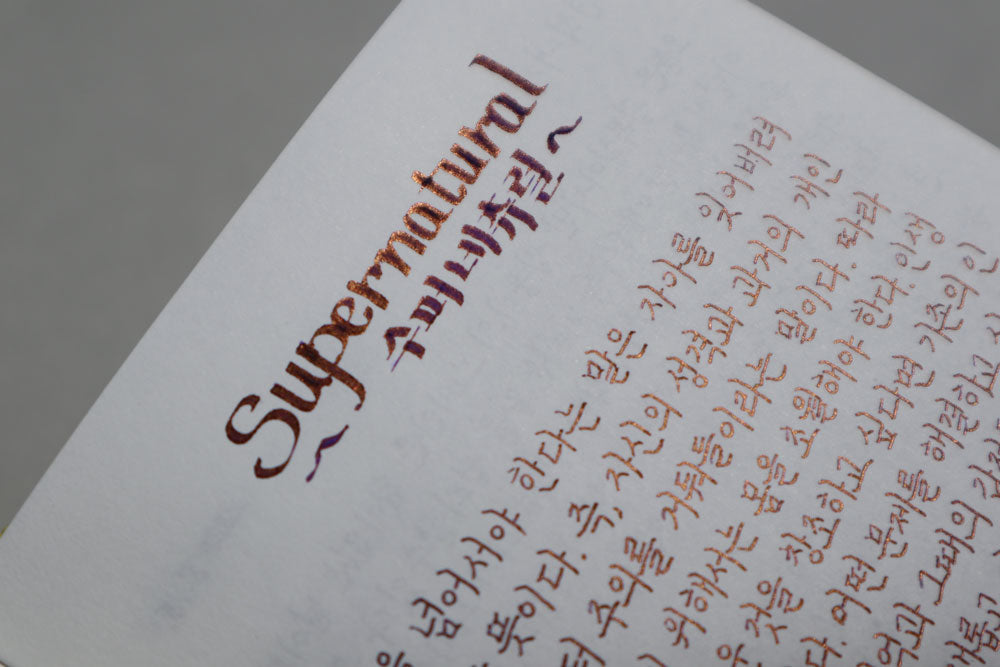 Supernatural
~수퍼네츄럴~
을 넘어서야 한다는 말은 자아를 잊어버려
뜻이다. 즉, 자신의 성격과 과거의 개인
터 주의를 거둬들이라는 말이다. 따라
위해서는 몸을 초월해야 한다. 인생
운 것을 창조하고 싶다면 기존의 인
다. 어떤 문제를 해결하고
억과 그때의